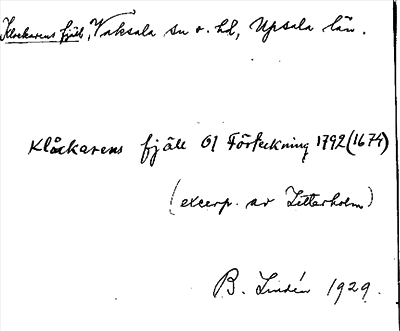 Klockarens fjäll, Vaksala sn o. hd, Upsala län.
Klåckarens fjäll Ol Förteckning 1792 (1674)
(excerp. av Zetterholm)
B. Lindén 1929.